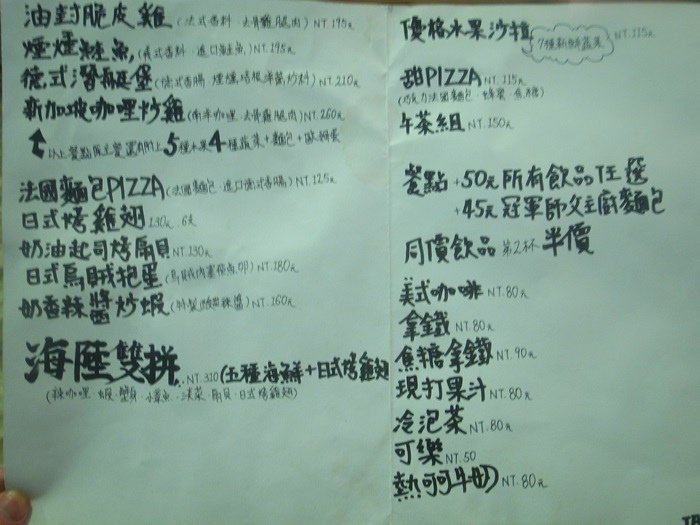 油封脆皮雞(法式香料．去骨雞腿肉)NT.195元
煙燻鮭魚(法式香料．進口鮭魚)NT.195元
德式潛艇堡(德式香腸．煙燻培根洋蔥炒料)NT.210元
新加坡咖哩炒雞(南洋咖哩．去骨雞腿肉)NT.260元
以上餐點 5種水果 4種蔬菜+麵包+歐姆蛋
法國麵包PIZZA(法國麵包．進口德式香腸)NT.125元
日式烤雞翅130元．6支
奶油起司烤扇貝NT.130元
日式烏賊抱蛋(烏賊肉裹飛魚卵)NT.180元
奶香辣醬炒蝦(特製 辣醬)NT.160元
海陸雙拼NT.310(五種海鮮+日式烤雞翅
(辣咖哩．蝦．蟹身．小章魚．淡菜．扇貝．日式烤雞翅)
優格水果沙拉 7種新鮮蔬果 NT.115元
甜PIZZA NT.115元
(巧克力法國麵包．蜂蜜．焦糖)
午茶組NT.150元
餐點+50元所有飲品任選
+45元冠軍師父主廚麵包
同價飲品 第2杯 半價
美式咖啡NT.80元
拿鐵NT.80元
焦糖拿鐵NT.90元
現打果汁NT.80元
冷泡茶NT.80元
可樂NT.50
熱可可牛奶NT.80元